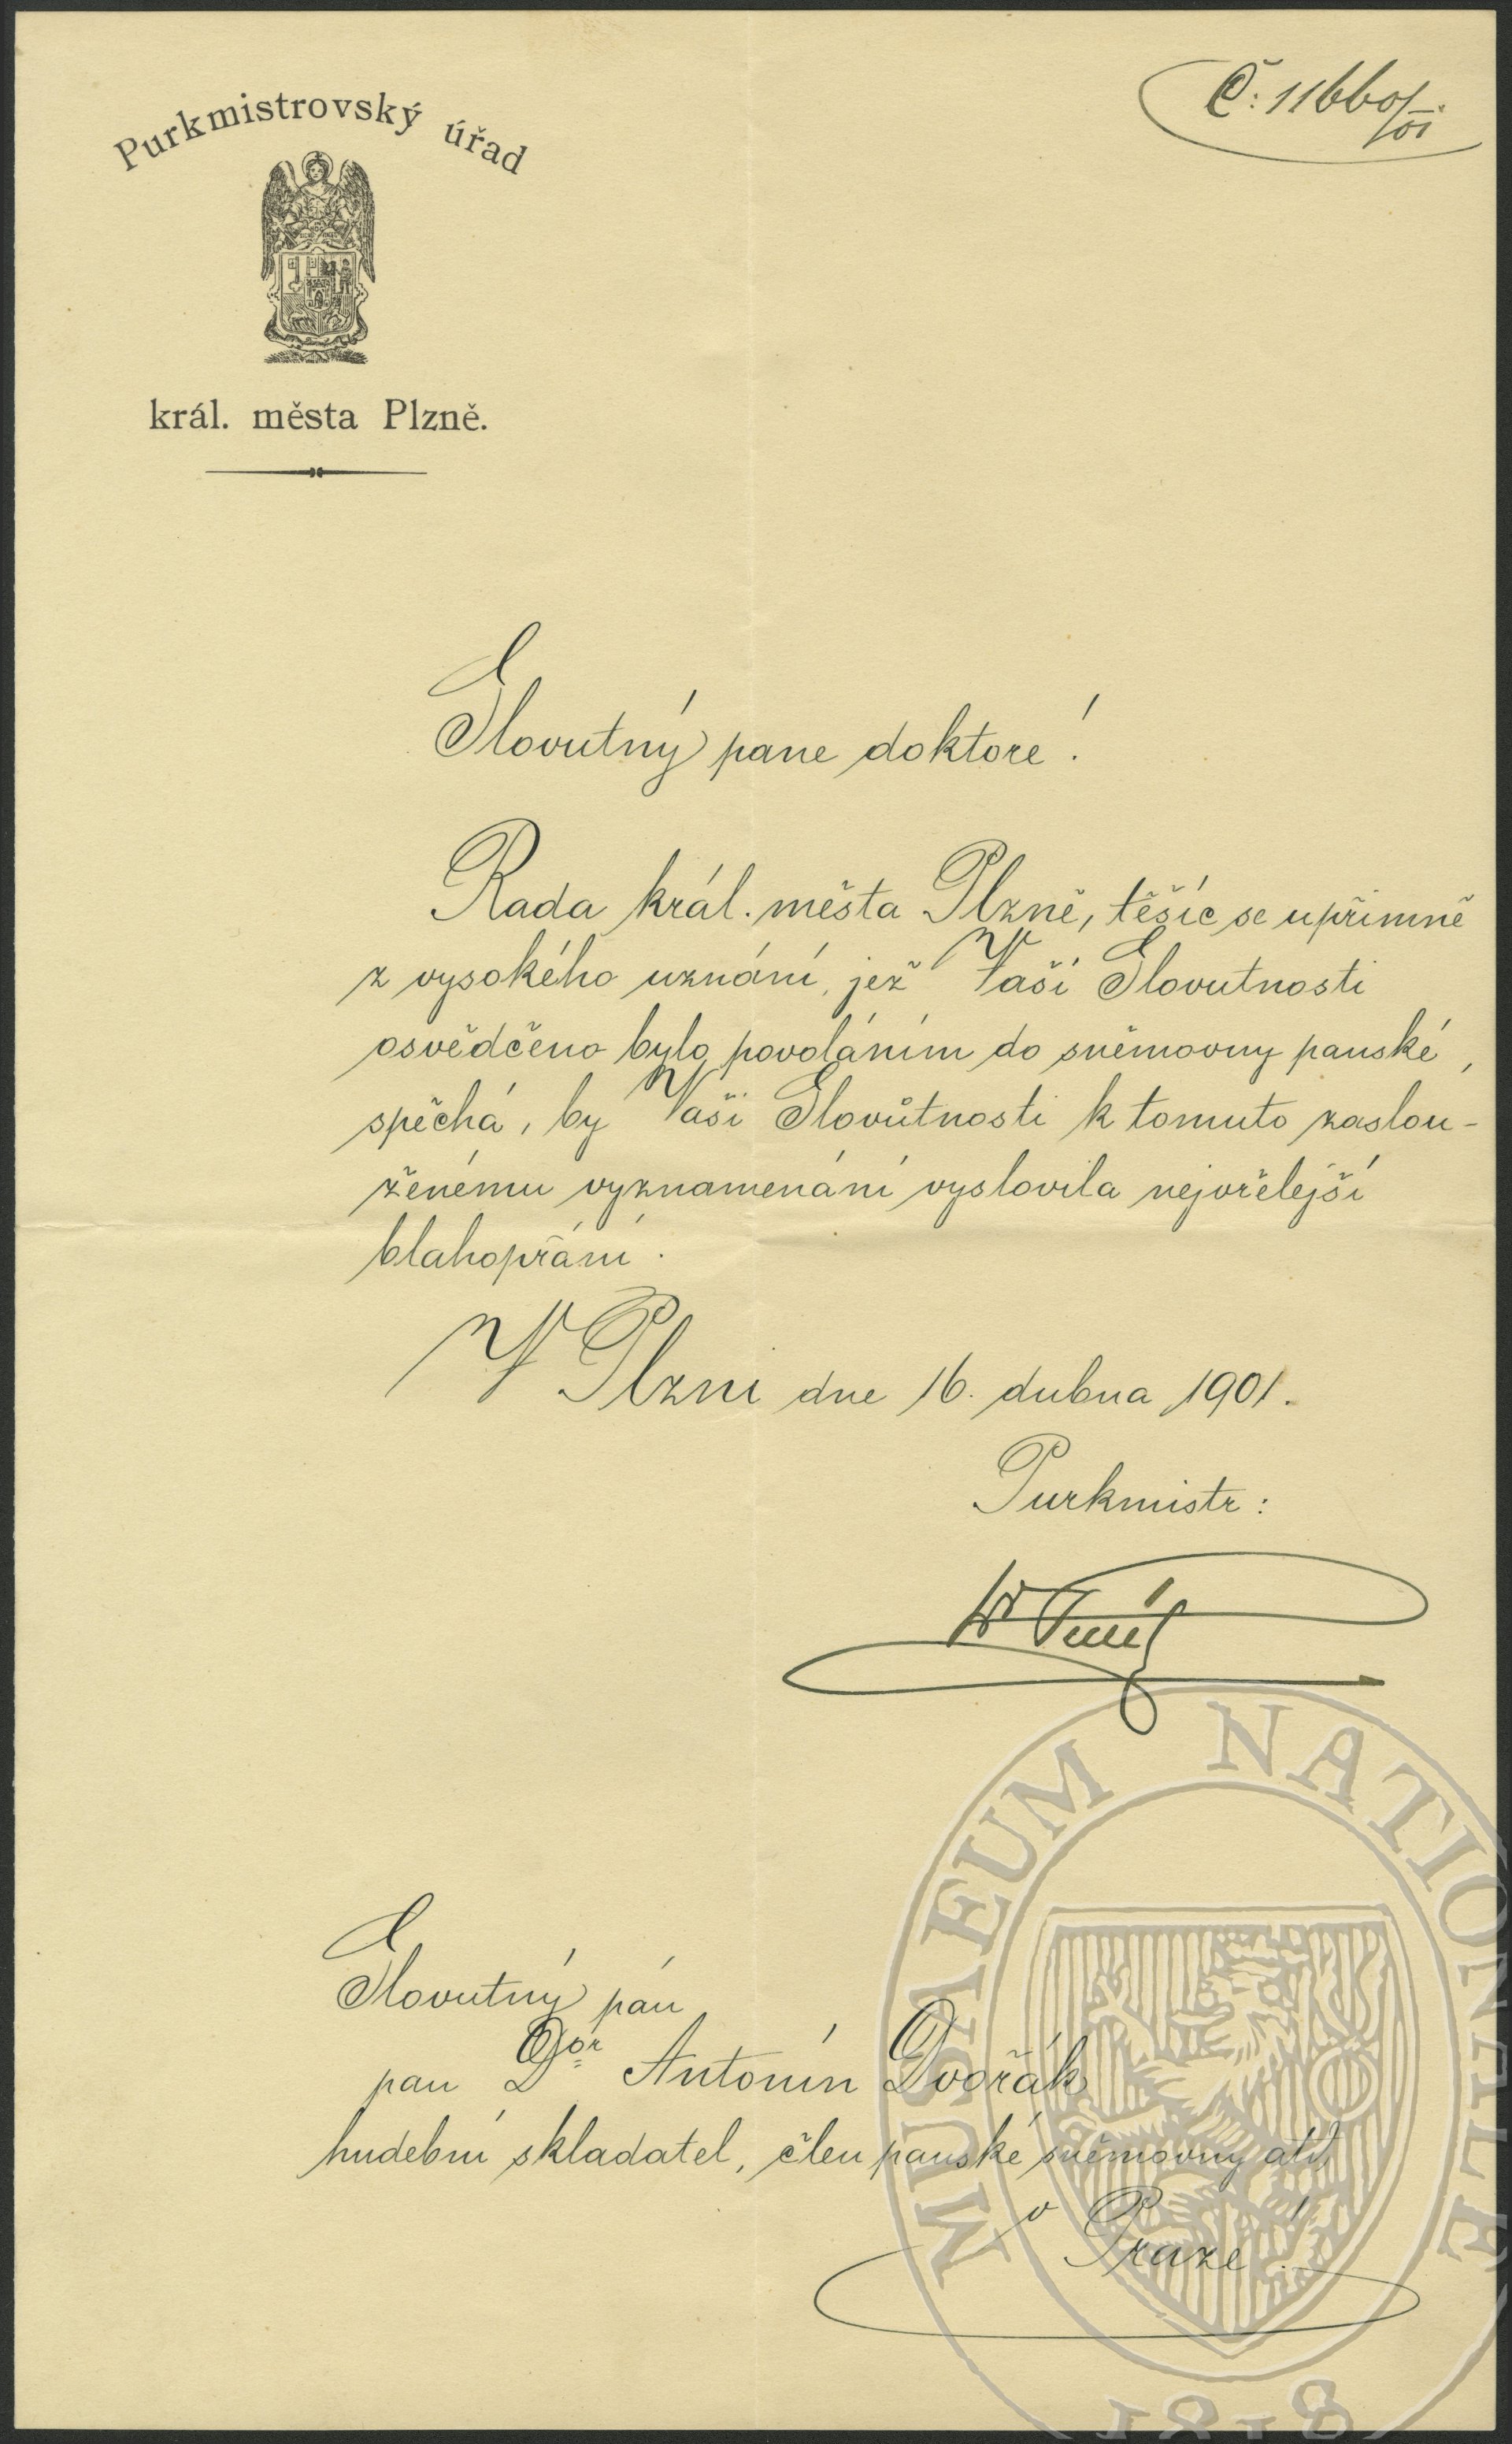 Č: 11660/01.
Purkmistrovský úřad
král. města Plzně.
Slovutný pane doktore!
Rada král. města Plzně, těšíc se upřimně
z vysokého uznání, jež Vaší Slovutnosti
osvědčeno bylo povoláním do sněmovny panské,
spěchá, by Vaší Slovůtnosti k tomuto zaslou-
ženému vyznamenání vyslovila nejvřelejší
blahopřání.
V Plzni dne 16. dubna 1901.
Purkmistr:
Dr
Slovutný pán
pan Dor Antonín Dvořák
hudební skladatel, člen panské sněmovny atd.
v Praze.
MUSAEUM NATIONALE
1818